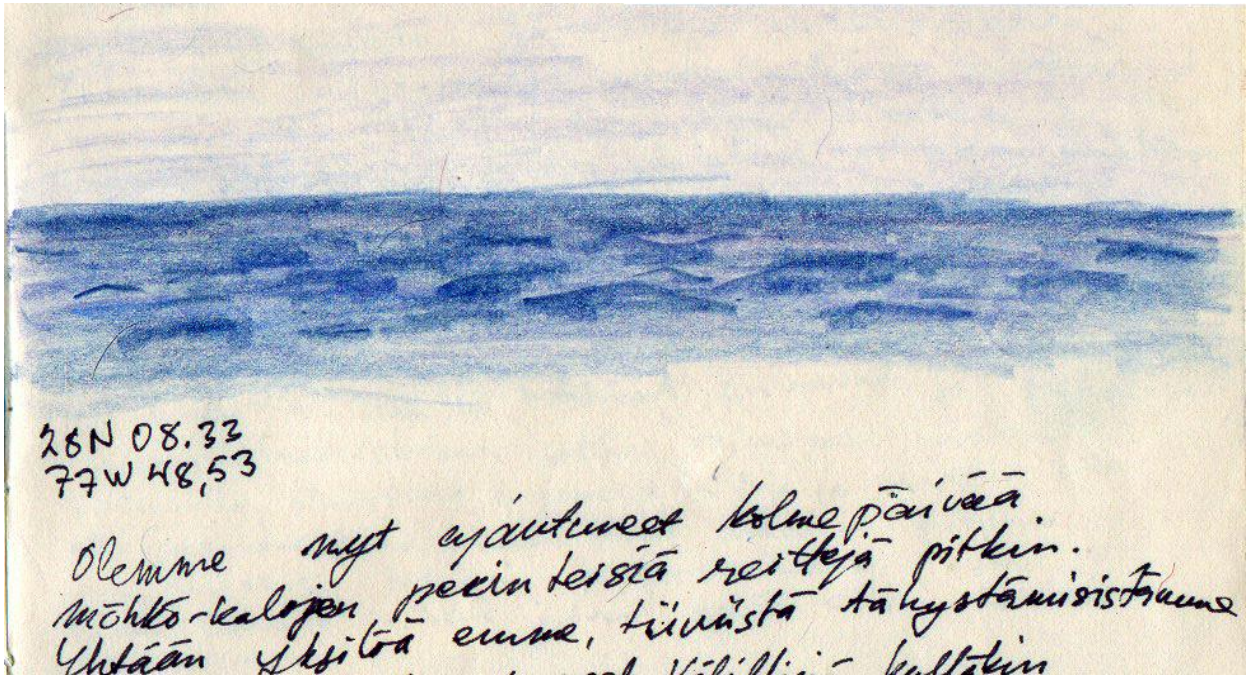 28N 08.33
77W 48,53
Olemme nyt ajautuneet kolme päivää
möhkö-kalojen perinteisiä reittejä pitkin.
Yhtään yksilöä emme, tiiviistä tähystämisistämme